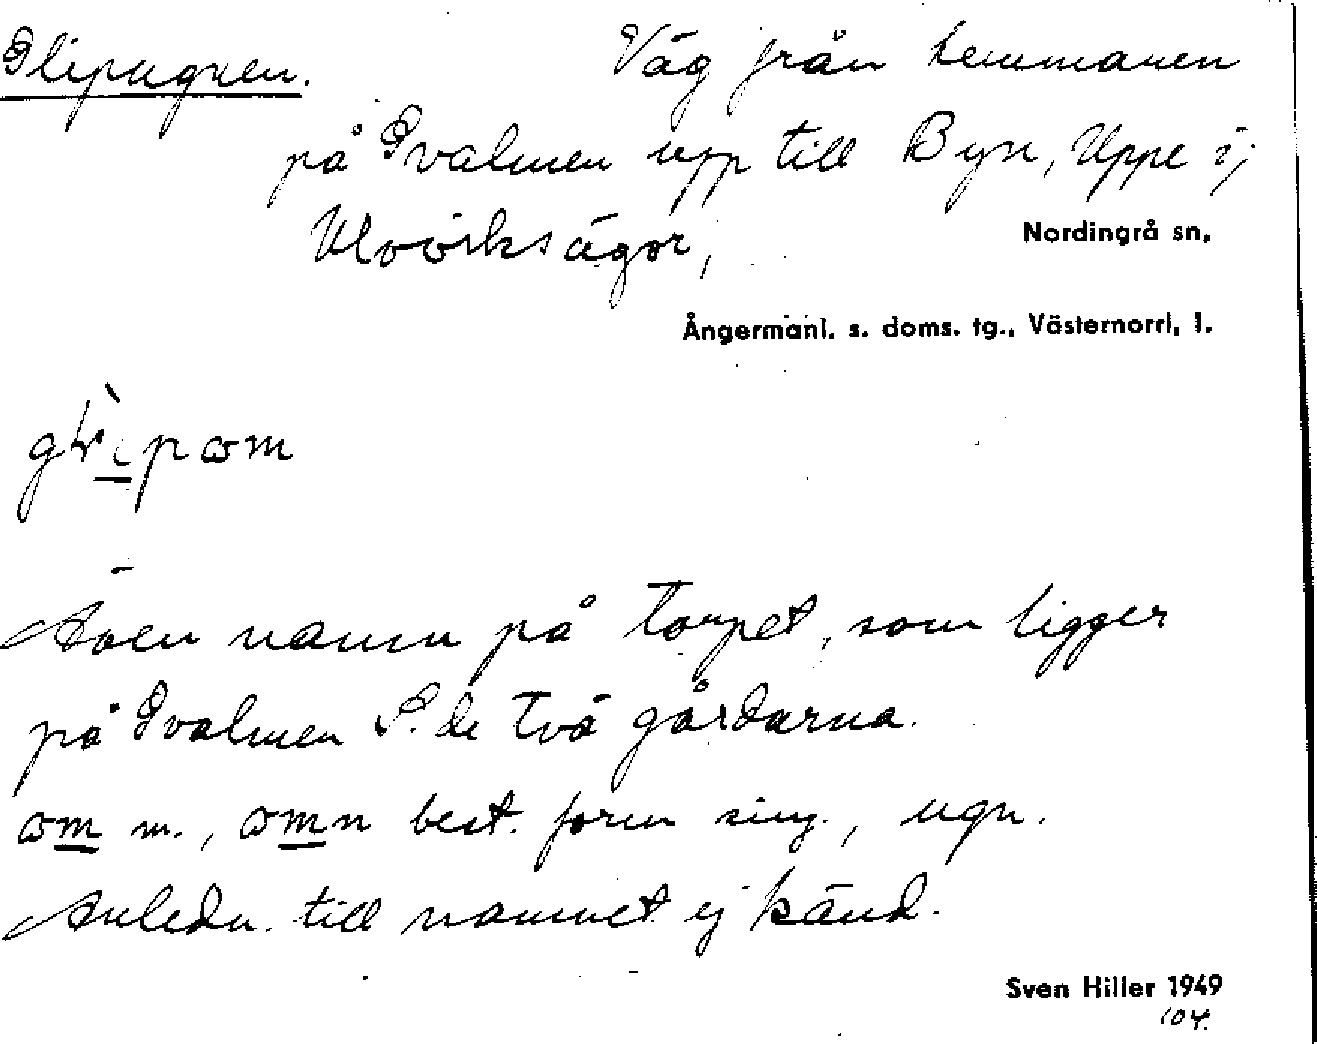 Glipugnen.
Väg från hemmanen
på Gvalmen upp till Byn, Uppe i;
Ulvöviks ägor,
Nordingrå sn,
Ångermanl. s. doms. tg., Västernorrl. l.
om
Även namn på torpet, som ligger
på Gvalmen S. de två gårdarna.
om m., omn best. form sing., ugn.
Anledn. till namnet ej känd.
Sven Hiller 1949
104.